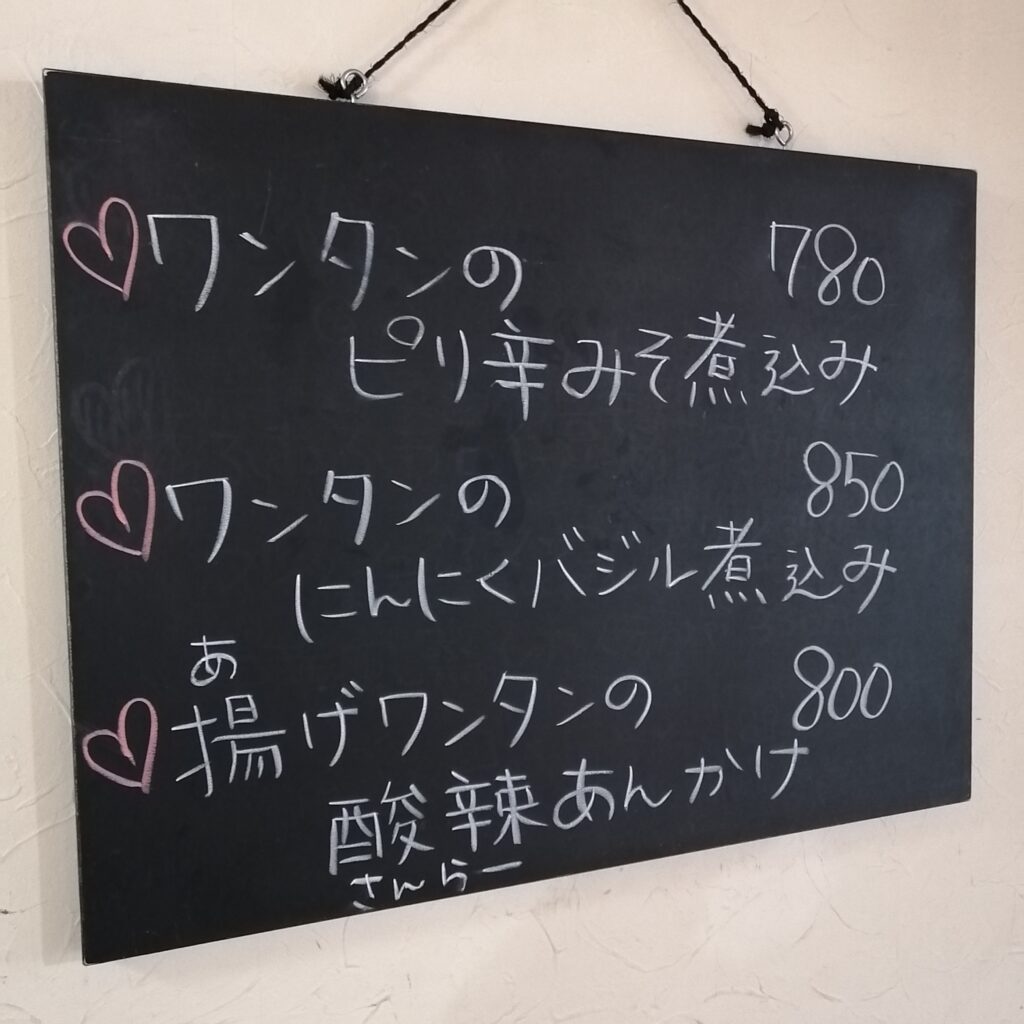 ワンタンの 780
ピリ辛みそ煮込み
ワンタンの 850
にんにくバジル煮込み
あ
揚げワンタンの 800
酸辣あんかけ
さんらー